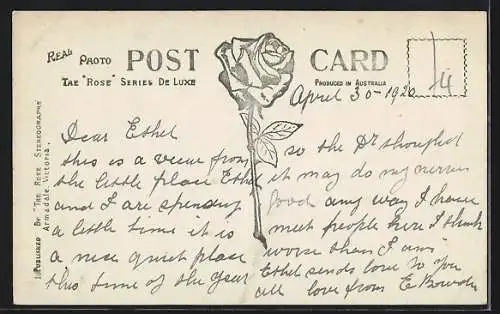 REAL PHOTO POST CARD
THE "ROSE" SERIES DE LUXE
PRODUCED IN AUSTRALIA
PUBLISHED BY "THE ROSE STEREOGRAPHS"
ARMADALE, VICTORIA.
April 30-1920
Dear Ethel
this is a view from
the little place Ethel
and I are spending
a little time it is
a nice quiet place
this time of the year
so the Dr thought
it may do my nerves
good any way I have
meet people here I think
worse than I am
Ethel sends love to you
all love from E